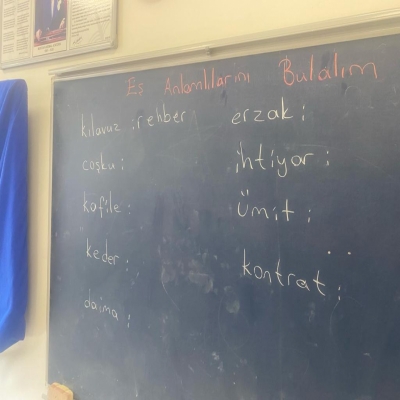 Eş Anlamlılarını Bulalım
kılavuz : rehber
coşku :
kafile :
keder :
daima :
erzak :
ihtiyar :
ümit :
kontrat :